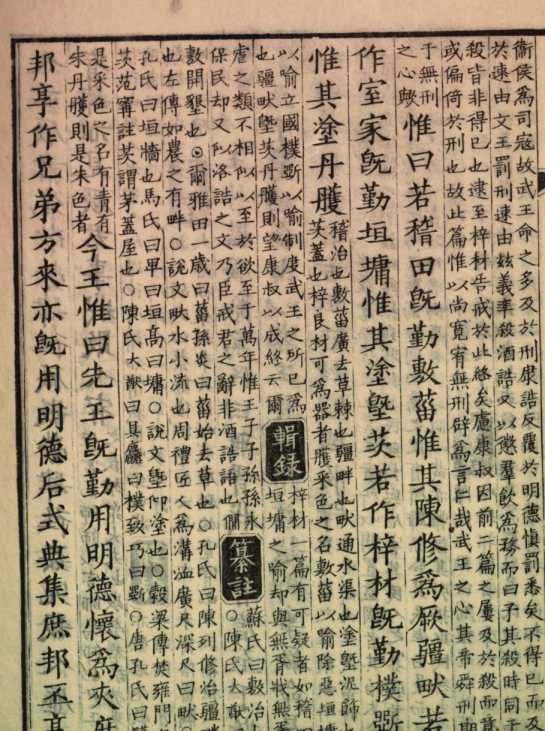 衛侯爲司寇故武王命之多及於刑康誥反覆於明德愼罰悉矣不得已而及
於速由文王罰刑速由玆義率殺酒誥又以懲羣飲爲殄而曰予其殺時同于
殺皆非得已也逮至梓材告戒於此終矣慮康叔因前二篇之屢及於殺而意
或偏倚於刑也故此篇惟以尚寛宥無刑辟爲言仁哉武王之心其帝舜刑期
于無刑
之心歟
惟曰若稽田旣勤敷菑惟其陳修爲厥疆畎若
作室家旣勤垣墉惟其塗塈茨若作梓材旣勤樸斲
惟其塗丹雘
稽治也敷菑廣去草棘也疆畔也畎通水渠也塗塈泥飾也
茨蓋也梓良材可爲器者雘采色之名敷菑以喻除惡垣墉
以喻立國樸斲以喻制度武王之所已爲
也疆畎塈茨丹雘則望康叔以成終云爾
輯錄
梓材一篇有可疑者如稽田
垣墉之喻却與無胥戕無胥
虐之類不相似以至於欲至于萬年惟王子子孫孫永
保民却又似洛誥之文乃臣戒君之辭非酒誥語也僩
纂註
蘇氏曰敷治也
○陳氏大猷
敷開墾也○爾雅田一歲曰菑孫炎曰菑始去草也○孔氏曰陳列修治疆
也左傳如農之有畔○說文畎水小流也周禮匠人爲溝洫廣尺深尺曰畎
孔氏曰垣墻也馬氏曰卑曰垣高曰墉○說文塈仰塗也○穀梁傳焚雍門
茨范甯註茨謂茅蓋屋也○陳氏大猷曰具麤曰樸致巧曰斲○唐孔氏曰
是采色之名有青有
朱丹雘則是朱色者
今王惟曰先王旣勤用明德懷爲夾庶
邦享作兄弟方來亦旣用明德后式典集庶邦丕享